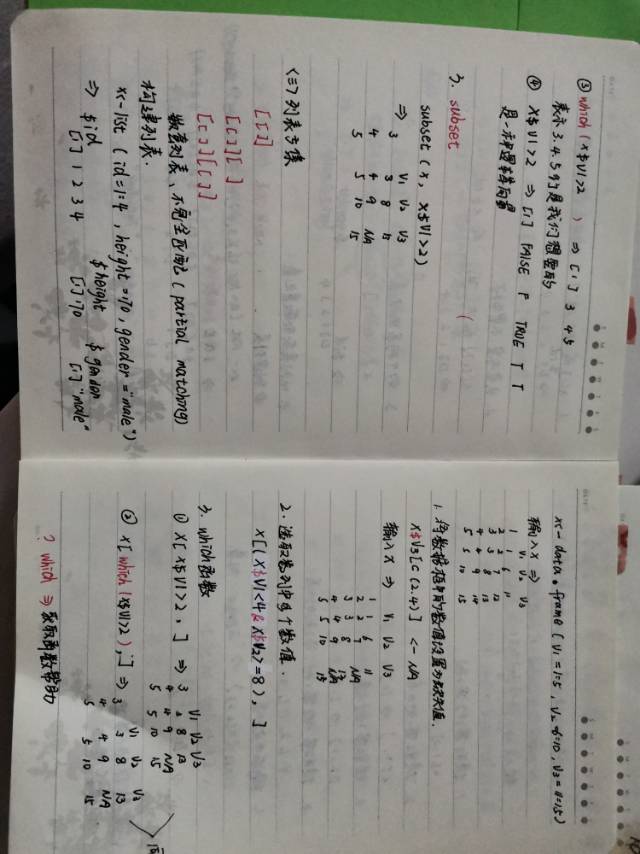 ③ which (x$V1>2 ) ⇒ [1] 3 4 5
表示3.4.5行是我们想要的
④ X$V1>2 ⇒ [1] FALSE F TRUE T T
是一种逻辑向量
3. subset
subset (x, x$V1>2)
⇒ V1 V2 V3
3 3 8 13
4 4 9 NA
5 5 10 15
<三>列表子集
[[ ]]
[[ ]][ ]
[[ ]][[ ]]
嵌套列表、不完全匹配 (partial matching)
构建列表.
x<-list (id=1:4, height=170, gender="male")
⇒ $id $height $gender
[1] 1 2 3 4 [1] 170 [1] "male"
x<-data.frame (V1=1:5, V2=6:10, V3=11:15)
输入x ⇒
V1 V2 V3
1 1 6 11
2 2 7 12
3 3 8 13
4 4 9 14
5 5 10 15
1. 将数据框中的数值设置为缺失值.
X$V3[c(2,4)] <- NA
输入x ⇒ V1 V2 V3
1 1 6 11
2 2 7 NA
3 3 8 13
4 4 9 NA
5 5 10 15
2. 选取列中多个数值.
x[(x$V1<4 & x$V2>=8), ]
3. which函数
① x[x$V1>2, ] ⇒ V1 V2 V3
3 3 8 13
4 4 9 NA
5 5 10 15
② x[which(x$V1>2),] ⇒ V1 V2 V3
3 3 8 13
4 4 9 NA
5 5 10 15
? which ⇒ 获取函数帮助